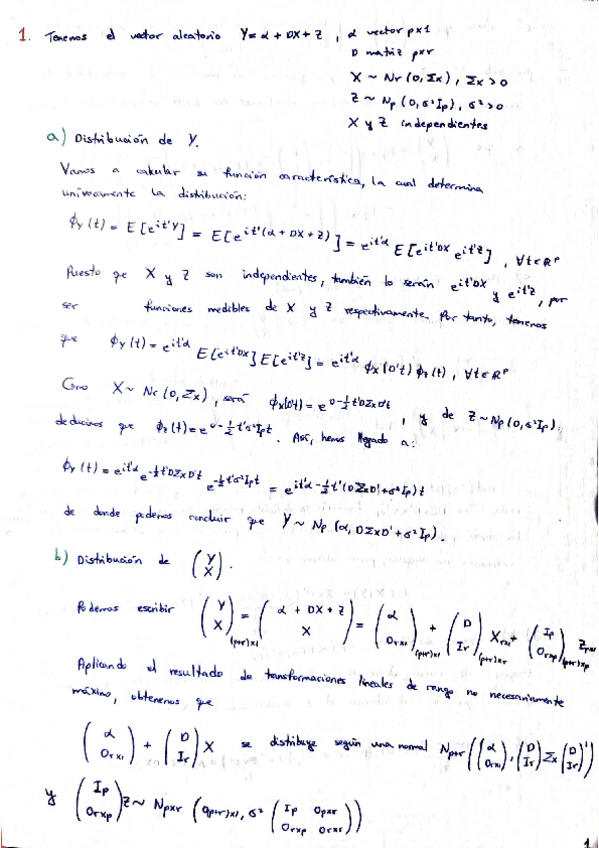 1. Tenemos el vector aleatorio Y = α + DX + Z , α vector px1
D matriz pxr
X ~ Nr (0, Σx) , Σx > 0
Z ~ Np (0, σ² Ip) , σ² > 0
X y Z independientes
a) Distribución de Y.
Vamos a calcular su función característica, la cual determina
unívocamente la distribución:
ϕY (t) = E [e^{it'Y}] = E[e^{it'(α + DX + Z)}] = e^{it'α} E[e^{it'DX} e^{it'Z}] , ∀t∈ℝ^p
Puesto que X y Z son independientes, también lo serán e^{it'DX} y e^{it'Z}, por
ser funciones medibles de X y Z respectivamente. Por tanto, tenemos
que ϕY (t) = e^{it'α} E[e^{it'DX}] E[e^{it'Z}] = e^{it'α} ϕX(D't) ϕZ(t) , ∀t∈ℝ^p
Como X ~ Nr (0, Σx) , será ϕX(D't) = e^{0 - ½ t'DΣxD't} , y de Z ~ Np (0, σ² Ip)
deducimos que ϕZ(t) = e^{0 - ½ t'σ²Ip t} . Así, hemos llegado a:
ϕY (t) = e^{it'α} e^{-½ t'DΣxD't} e^{-½ t'σ²Ip t} = e^{it'α - ½ t'(DΣxD' + σ²Ip) t}
de donde podemos concluir que Y ~ Np (α, DΣxD' + σ² Ip).
b) Distribución de (Y X).
Podemos escribir (Y X)_{(p+r)x1} = (α + DX + Z X) = (α 0rx1)_{(p+r)x1} + (D Ir)_{(p+r)xr} X_{rx1} + (Ip 0rxp)_{(p+r)xp} Z_{px1}
Aplicando el resultado de transformaciones lineales de rango no necesariamente
máximo, obtenemos que
(α 0rx1) + (D Ir) X se distribuye según una normal Np+r ((α 0rx1), (D Ir) Σx (D Ir)')
y (Ip 0rxp) Z ~ Npxr (0(p+r)x1, σ² (Ip 0pxr 0rxp 0rxr))
1